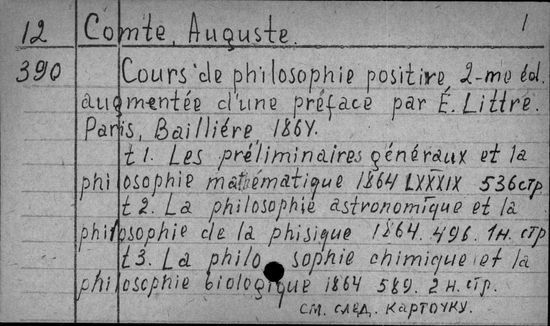 12 Comte, Auguste. 1
390 Cours de philosophie positive, 2-me éd.
augmentée d'une préface par É. Littré.
Paris, Baillière, 1864.
t 1. Les préliminaires généraux et la
philosophie mathématique 1864 LXXXIX 536 стр
t 2. La philosophie astronomique et la
philosophie de la phisique 1864. 496. 1 н. стр
t 3. La philo sophie chimique et la
philosophie biologique 1864 589. 2 н. стр.
см. след. карточку.